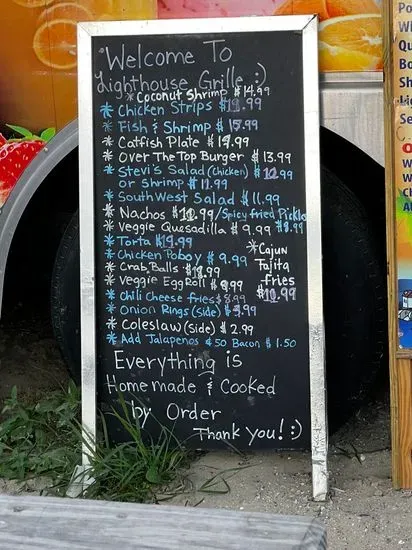 Welcome To
Lighthouse Grille :)
* Coconut Shrimp $14.99
* Chicken Strips $12.99
* Fish & Shrimp $15.99
* Catfish Plate $14.99
* Over The Top Burger $13.99
* Stevi's Salad (Chicken) $12.99
or Shrimp $11.99
* SouthWest Salad $11.99
* Nachos $12.99/Spicy fried Pickle
* Veggie Quesadilla $9.99 $8.99
* Torta $14.99
* Chicken Poboy $9.99
* Cajun
Fajita
Fries
$10.99
* Crab Balls $11.99
* Veggie EggRoll $9.99
* Chili Cheese fries $8.99
* Onion Rings (side) $3.99
* Coleslaw (side) $2.99
* Add Jalapenos $.50 Bacon $1.50
Everything is
Homemade & Cooked
by Order
Thank you! :)